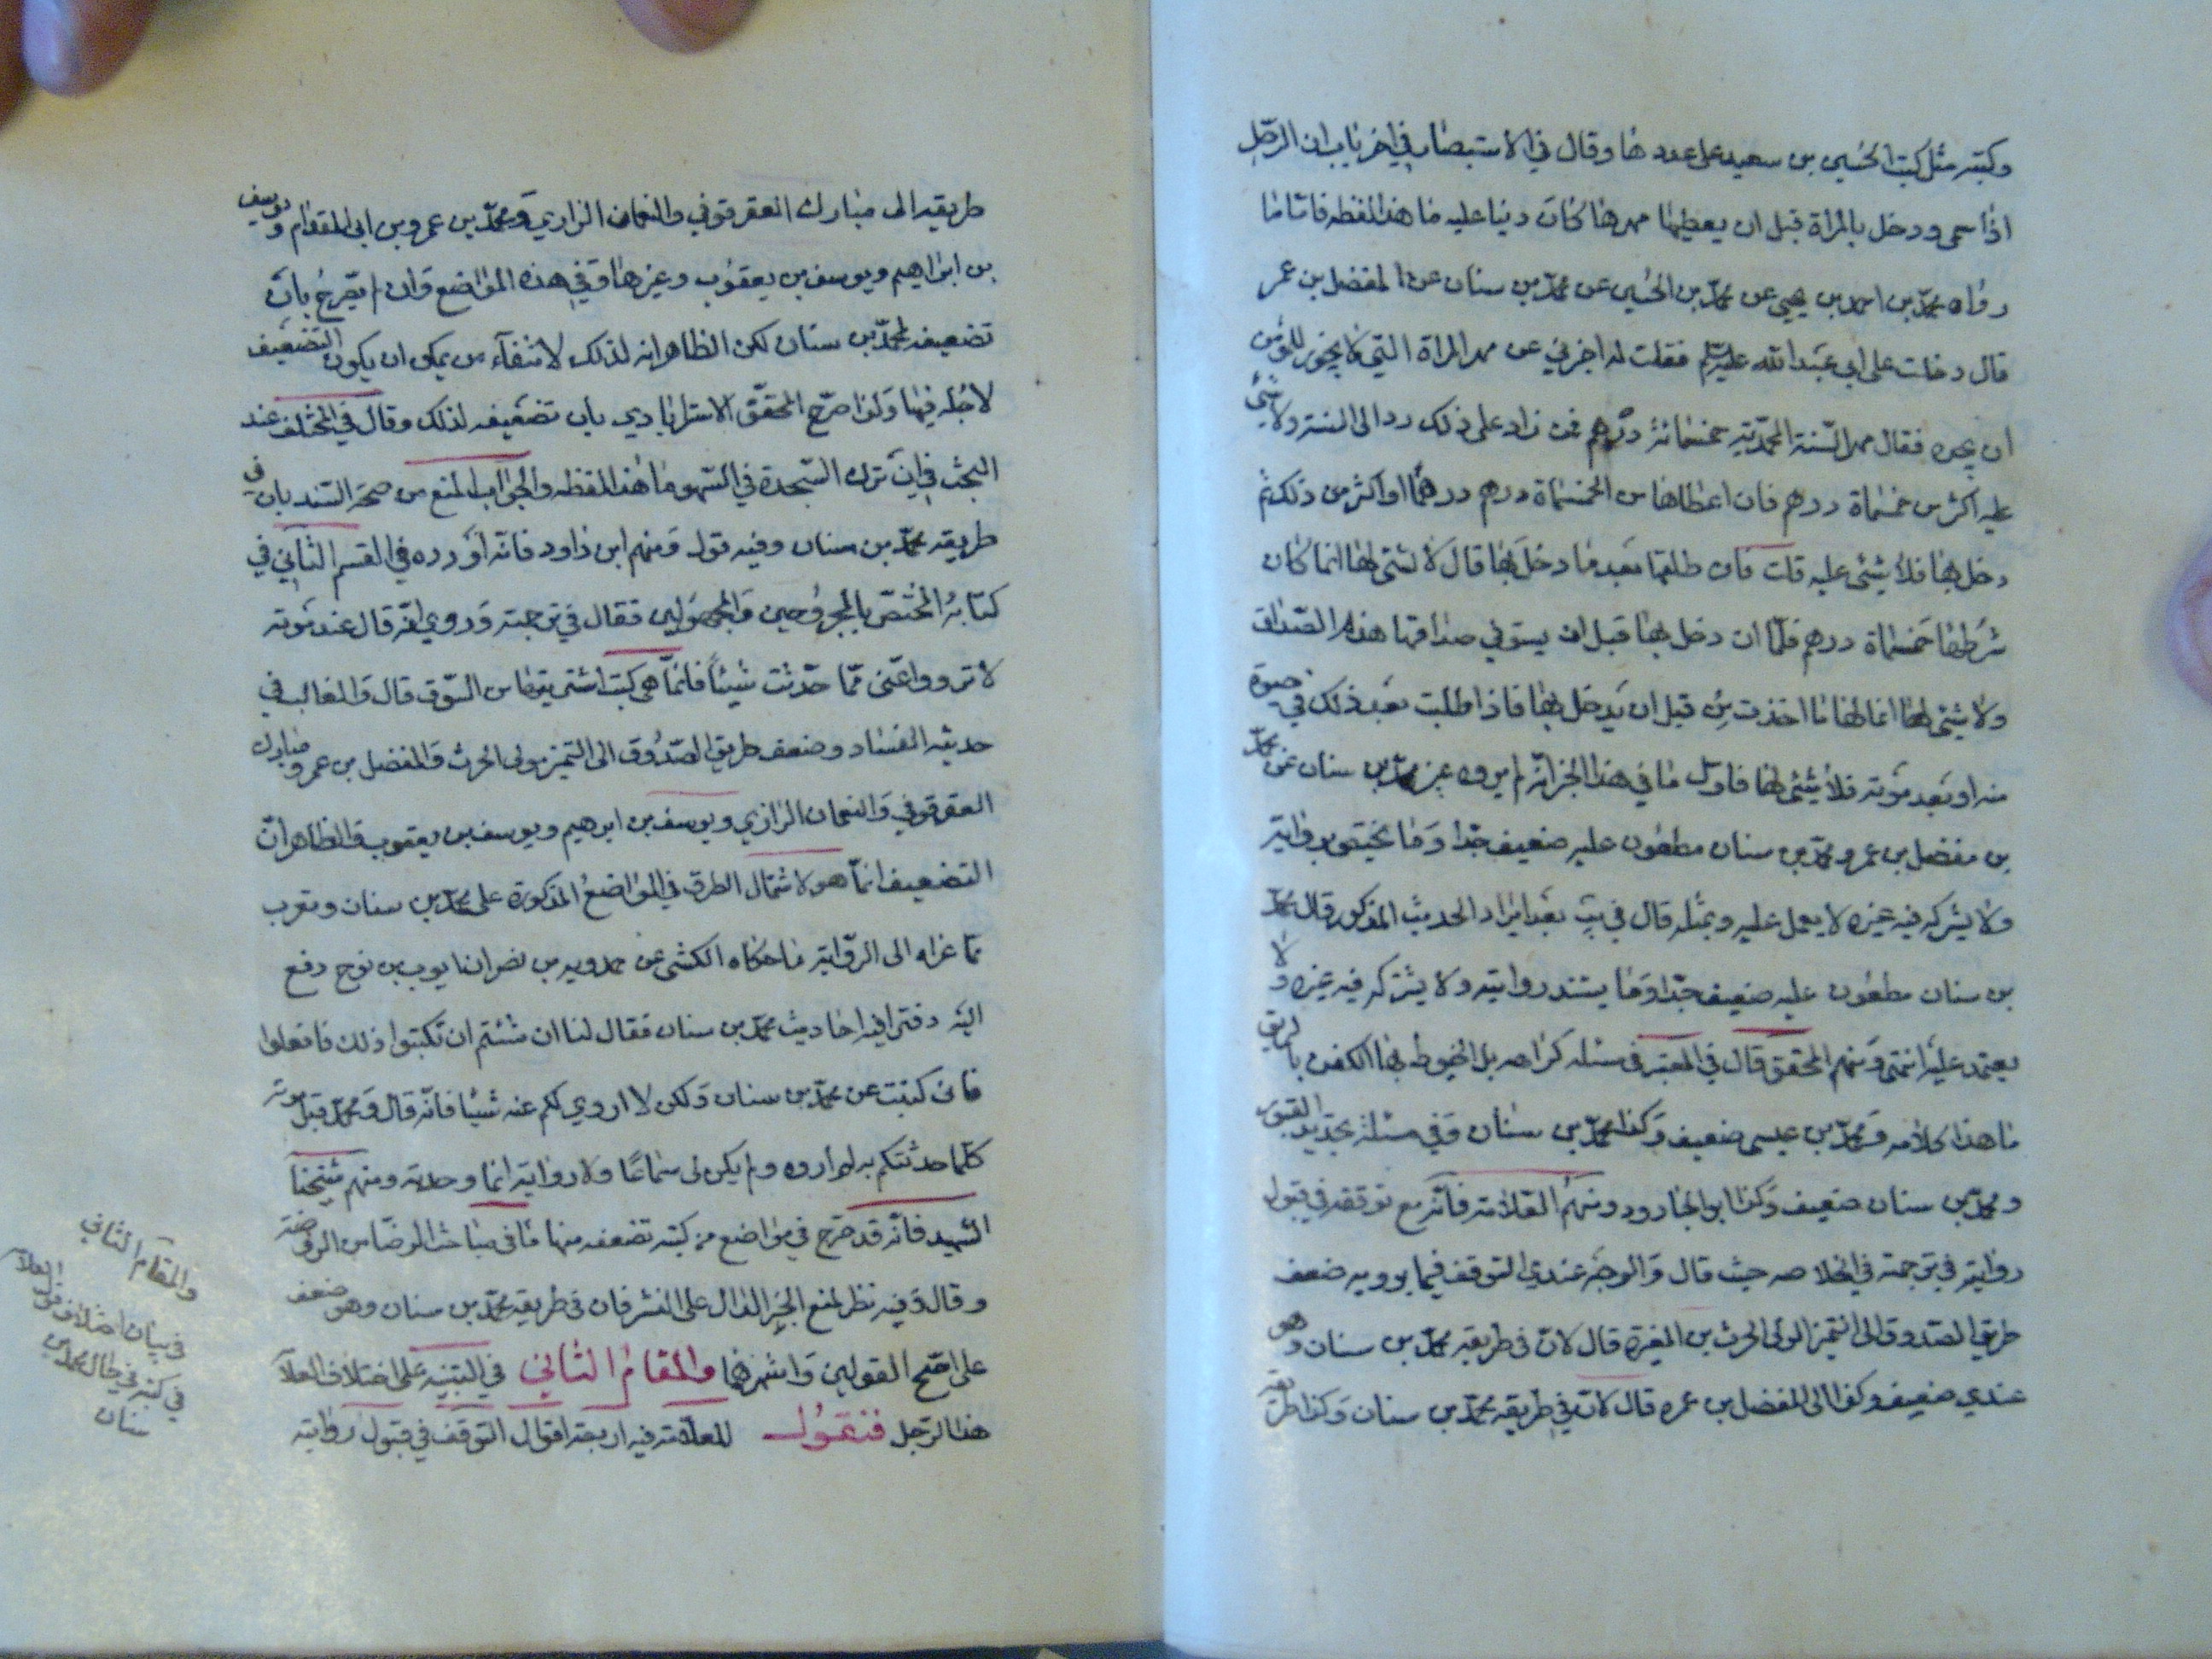 وكتبه مثل كتب الحسين بن سعيد على عددها وقال في الاستبصار في اخر باب ان الرجل
اذا سمى ودخل بالمراة قبل ان يعطيها مهرها كان دينا عليه ما هذا لفظه فاما ما
رواه محمد بن احمد بن يحيى عن محمد بن الحسين عن محمد بن سنان عن المفضل بن عمر
قال دخلت على ابي عبد الله عليه السلم فقلت له اخبرني عن مهر المراة التي لا يجوز للمؤمن
ان يجوزه فقال مهر السنة المحمدية خمسمائة درهم فمن زاد على ذلك رد الى السنة ولا شئ
عليه اكثر من خمسماة درهم فان اعطاها من الخمسماة درهم درهما او اكثر من ذلك ثم
دخل بها فلا شئ عليه قلت فان طلقها بعد ما دخل بها قال لا شئ لها انما كان
شرطها خمسماة درهم فلما ان دخل بها قبل ان يستوفي صداقها هدم الصداق
ولا شئ لها انما لها ما اخذت من قبل ان يدخل بها فاذا طلبت بعد ذلك في حيوة
منه او بعد موته فلا شئ لها فاول ما في هذا الخبر انه لم يروه غير محمد بن سنان عن محمد
بن مفضل بن عمر ومحمد بن سنان مطعون عليه ضعيف جدا وما يختص بروايته
ولا يشركه فيه غيره لا يعمل عليه وبمثله قال في يب بعد ايراد الحديث المذكور قال محمد
بن سنان مطعون عليه ضعيف جدا وما يستند بروايته ولا يشركه فيه غيره ولا
يعتمد عليه انتهى ومنهم المحقق قال في المعتبر في مسئلة كراهه بل الخيوط بها الكفن بالريق
ما هذا كلامه ومحمد بن عيسى ضعيف وكذا محمد بن سنان وفي مسئلة تجديد القبور
ومحمد بن سنان ضعيف وكذا ابو الجارود ومنهم العلامة فانه مع توقفه في قبول
روايته في ترجمته في الخلاصه حيث قال والوجه عندي التوقف فيما يرويه ضعف
طريق الصدوق الى التميز المولى الحرث بن المغيرة قال لان في طريقه محمد بن سنان وهو
عندي ضعيف وكذا الى المفضل بن عمره قال لان في طريقه محمد بن سنان وكذا طريقه
طريقه الى مبارك العقرقوفي والنعمان الرازي ومحمد بن عمرو بن ابي المقدام ويوسف
بن ابراهيم ويوسف بن يعقوب وغيرها وفي هذه المواضع وان لم يصرح بان
تضعيفه لمحمد بن سنان لكن الظاهر انه لذلك لانتفاء من يمكن ان يكون التضعيف
لاجله فيها ولذا صرح المحقق الاسترابادي بان تضعيفه لذلك وقال في المختلف عند
البحث في ان ترك السجدة في السهو ما هذا لفظه والجواب المنع من صحة السند بان في
طريقه محمد بن سنان وفيه قول ومنهم ابن داود فانه اورده في القسم الثاني في
كتابه المختص بالمجروحين والمجهولين فقال في ترجمته وروي انه قال عند موته
لا ترووا عني مما حدثت شيئا فانما هي كتب اشتريتها من السوق قال والغالب في
حديثه الفساد وضعف طريق الصدوق الى التميز مولى الحرث والمفضل بن عمر ومبارك
العقرقوفي والنعمان الرازي ويوسف بن ابرهيم ويوسف بن يعقوب والظاهر ان
التضعيف انما هو لاشتمال الطرق في المواضع المذكورة على محمد بن سنان ويقرب
مما عزاه الى الرواية ما حكاه الكشى عن حمدويه بن نصر ان ايوب بن نوح دفع
اليه دفترا فيه احاديث محمد بن سنان فقال لنا ان شئتم ان تكتبوا ذلك فافعلوا
فانى كتبت عن محمد بن سنان ولكن لا اروي لكم عنه شيئا فانه قال ومحمد قبل موته
كلما حدثتكم به لم اروه ولم يكن لى سماعا ولا رواية انما وجدته ومنهم شيخنا
الشهيد فانه قد صرح في مواضع من كتبه تضعفه منها ما في مباحث الرضاع من الروضة
وقال وفيه نظر لمنع الخبر الدال على النشر فان في طريقه محمد بن سنان وهو ضعف
على اصح القولين واشهرهما والمقام الثاني في التنبيه على اختلاف العلآ
هذا الرجل فنقول للعلامة فيه اربعة اقوال التوقف في قبول روايته
والمقام الثاني
في بيان اختلاف قول العلآ
في كتبه في حال محمد بن
سنان